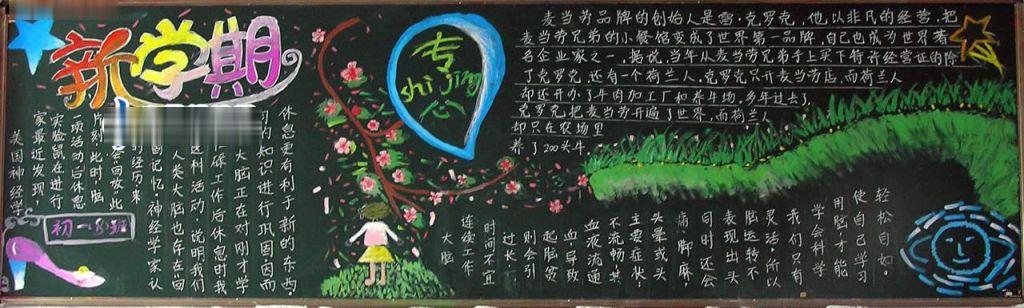 新学期
美国神经学
家最近发现
实验鼠在进行
一项活动后休息
片刻,此时脑
会回放此
的经历来
记忆,神经学家认
人类大脑也存在回
这种活动,说明我们
碌工作后休息时我
大脑正在对刚才学
的知识进行巩固因而
休息更有利于新的东西.
初一8班
专
shi jing
心
麦当劳品牌的创始人是雷·克罗克,他以非凡的经营,把
麦当劳兄弟的小餐馆变成了世界第一品牌,自己也成为世界著
名企业家之一,据说,当年从麦当劳兄弟手上买下特许经营证的除
了克罗克,还有一个荷兰人,克罗克只开麦当劳店,而荷兰人
却还开办了牛肉加工厂和养牛场,多年过去了,
克罗克把麦当劳开遍了世界,而荷兰人
却只在农场里
养了200头牛.
大脑
连续工作
时间不宜
过长,否
则会引
起脑贫
血,导致
血液流通
不流畅,其
主要症状
头晕或头
痛,脚麻,
同时还会
表现出头
脑运转不
灵活,所以
我们只有
学会科学
用脑才能
使自己学习
轻松自如.